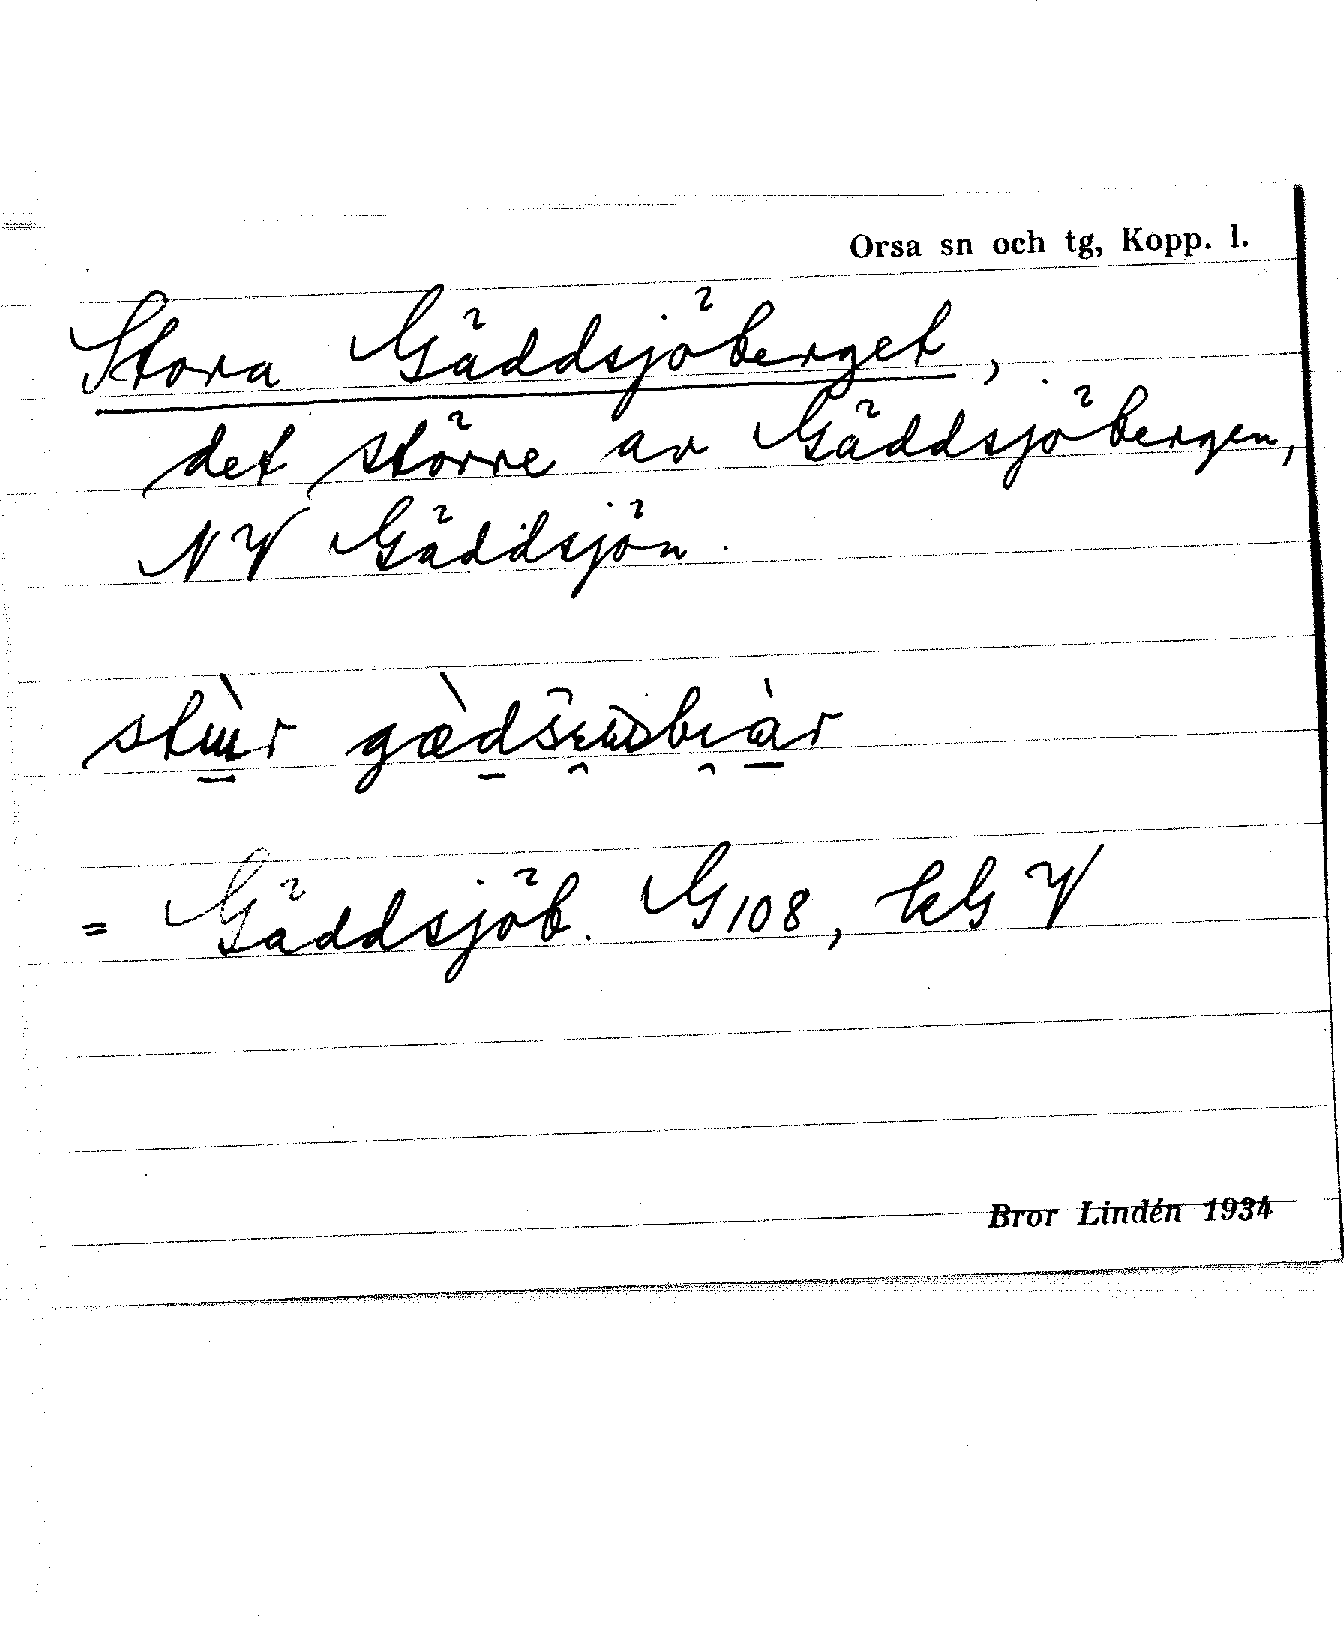 Orsa sn och tg, Kopp. l.
Stora Gäddsjöberget,
det större av Gäddsjöbergen,
NV Gäddsjön.
= Gäddsjöb. G108, kG V
Bror Lindén 1934